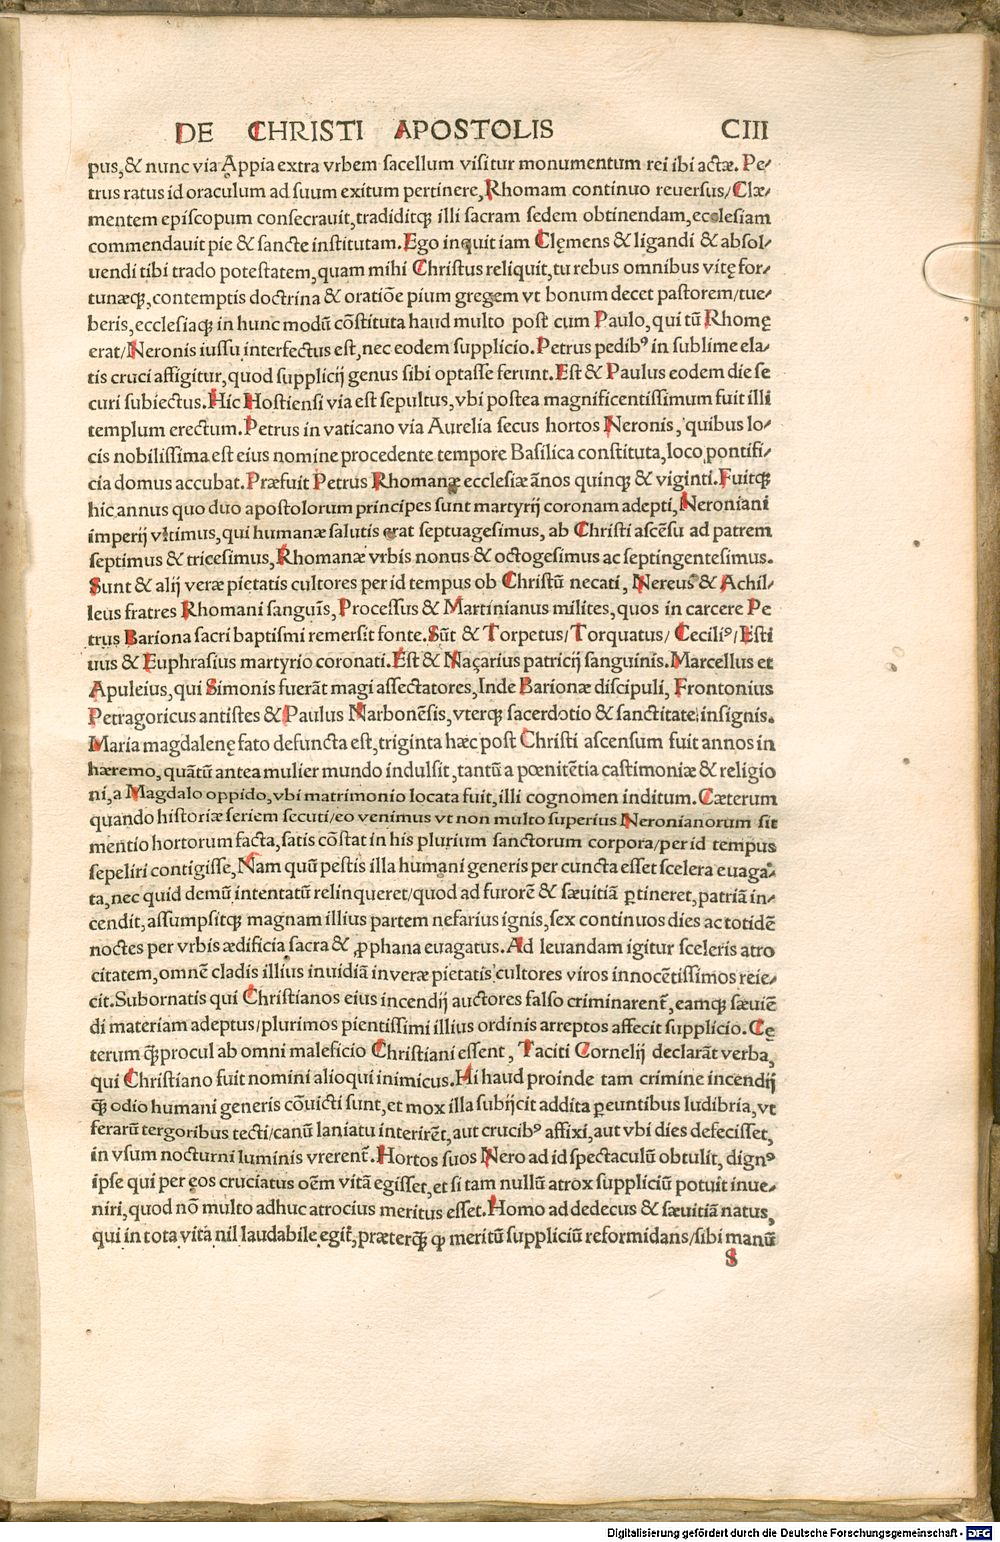 DE CHRISTI APOSTOLIS CIII
pus,& nunc via Appia extra vrbem sacellum visitur monumentum rei ibi actæ. Pe-
trus ratus id oraculum ad suum exitum pertinere, Rhomam continuo reuersus/Clæ-
mentem episcopum consecrauit,tradiditqꝫ illi sacram sedem obtinendam,ecclesiam
commendauit pie & sancte institutam. Ego inquit iam Clęmens & ligandi & absol-
uendi tibi trado potestatem,quam mihi Christus reliquit,tu rebus omnibus vitę for-
tunæqꝫ,contemptis doctrina & oratiõe pium gregem vt bonum decet pastorem/tue-
beris,ecclesiaqꝫ in hunc modũ cõstituta haud multo post cum Paulo,qui tũ Rhomę
erat/Neronis iussu interfectus est,nec eodem supplicio. Petrus pedibꝰ in sublime ela-
tis cruci affigitur,quod supplicij genus sibi optasse ferunt. Est & Paulus eodem die se
curi subiectus. Hic Hostiensi via est sepultus,vbi postea magnificentissimum fuit illi
templum erectum. Petrus in vaticano via Aurelia secus hortos Neronis, quibus lo-
cis nobilissima est eius nomine procedente tempore Basilica constituta,loco pontifi-
cia domus accubat. Præfuit Petrus Rhomanæ ecclesiæ ãnos quinqꝫ & viginti. Fuitqꝫ
hic annus quo duo apostolorum principes sunt martyrij coronam adepti, Neroniani
imperij vltimus,qui humanæ salutis erat septuagesimus, ab Christi ascẽsu ad patrem
septimus & tricesimus, Rhomanæ vrbis nonus & octogesimus ac septingentesimus.
Sunt & alij veræ pietatis cultores per id tempus ob Christũ necati, Nereus & Achil-
leus fratres Rhomani sanguĩs, Processus & Martinianus milites, quos in carcere Pe
trus Bariona sacri baptismi remersit fonte. Sũt & Torpetus/ Torquatus/ Ceciliꝰ/ Esti
uus & Euphrasius martyrio coronati. Est & Naçarius patricij sanguinis. Marcellus et
Apuleius,qui Simonis fuerãt magi assectatores, Inde Barionæ discipuli, Frontonius
Petragoricus antistes & Paulus Narbonẽsis, vterqꝫ sacerdotio & sanctitate insignis.
Maria magdalenę fato defuncta est,triginta hæc post Christi ascensum fuit annos in
hæremo, quãtũ antea mulier mundo indulsit,tantũ a pœnitẽtia castimoniæ & religio
ni,a Magdalo oppido,vbi matrimonio locata fuit,illi cognomen inditum. Cæterum
quando historiæ seriem secuti/eo venimus vt non multo superius Neronianorum sit
mentio hortorum facta,satis cõstat in his plurium sanctorum corpora/per id tempus
sepeliri contigisse, Nam quũ pestis illa humani generis per cuncta esset scelera euaga-
ta,nec quid demũ intentatũ relinqueret/quod ad furorẽ & sæuitiã ꝑtineret,patriã in-
cendit,assumpsitqꝫ magnam illius partem nefarius ignis,sex continuos dies ac totidẽ
noctes per vrbis ædificia sacra & ꝓphana euagatus. Ad leuandam igitur sceleris atro
citatem,omnẽ cladis illius inuidiã in veræ pietatis cultores viros innocẽtissimos reie-
cit. Subornatis qui Christianos eius incendij auctores falso criminarent̃, eamqꝫ sæuiẽ
di materiam adeptus/plurimos pientissimi illius ordinis arreptos affecit supplicio. Cę
terum q̃ꝫ procul ab omni maleficio Christiani essent, Taciti Cornelij declarãt verba,
qui Christiano fuit nomini alioqui inimicus. Hi haud proinde tam crimine incendij
q̃ꝫ odio humani generis cõuicti sunt,et mox illa subijcit addita ꝑeuntibus ludibria,vt
ferarũ tergoribus tecti/canũ laniatu interirẽt,aut crucibꝰ affixi,aut vbi dies defecisset,
in vsum nocturni luminis vrerent̃. Hortos suos Nero ad id spectaculũ obtulit, dignꝰ
ipse qui per eos cruciatus oẽm vitã egisset,et si tam nullũ atrox suppliciũ potuit inue-
niri,quod nõ multo adhuc atrocius meritus esset. Homo ad dedecus & sæuitiã natus,
qui in tota vita nil laudabile egit̃, præterq̃ꝫ ꝙ meritũ suppliciũ reformidans/sibi manũ
S
Digitalisierung gefördert durch die Deutsche Forschungsgemeinschaft - DFG